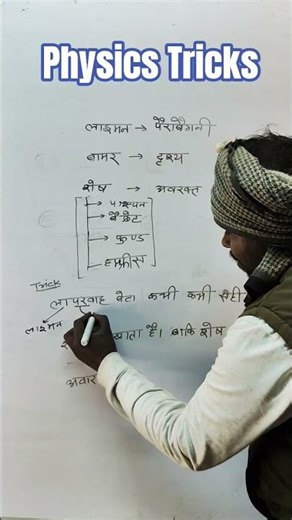 Physics Tricks
लाइमन → पैराबैंगनी
बामर → दृश्य
शेष → अवरक्त
→ पाश्चन
→ ब्रैकेट
→ फुण्ड
→ हम्फ्रीस
Trick
लापरवाह बेटा कभी कभी
लाइमन
खाता है। बाकि शेष
अवार